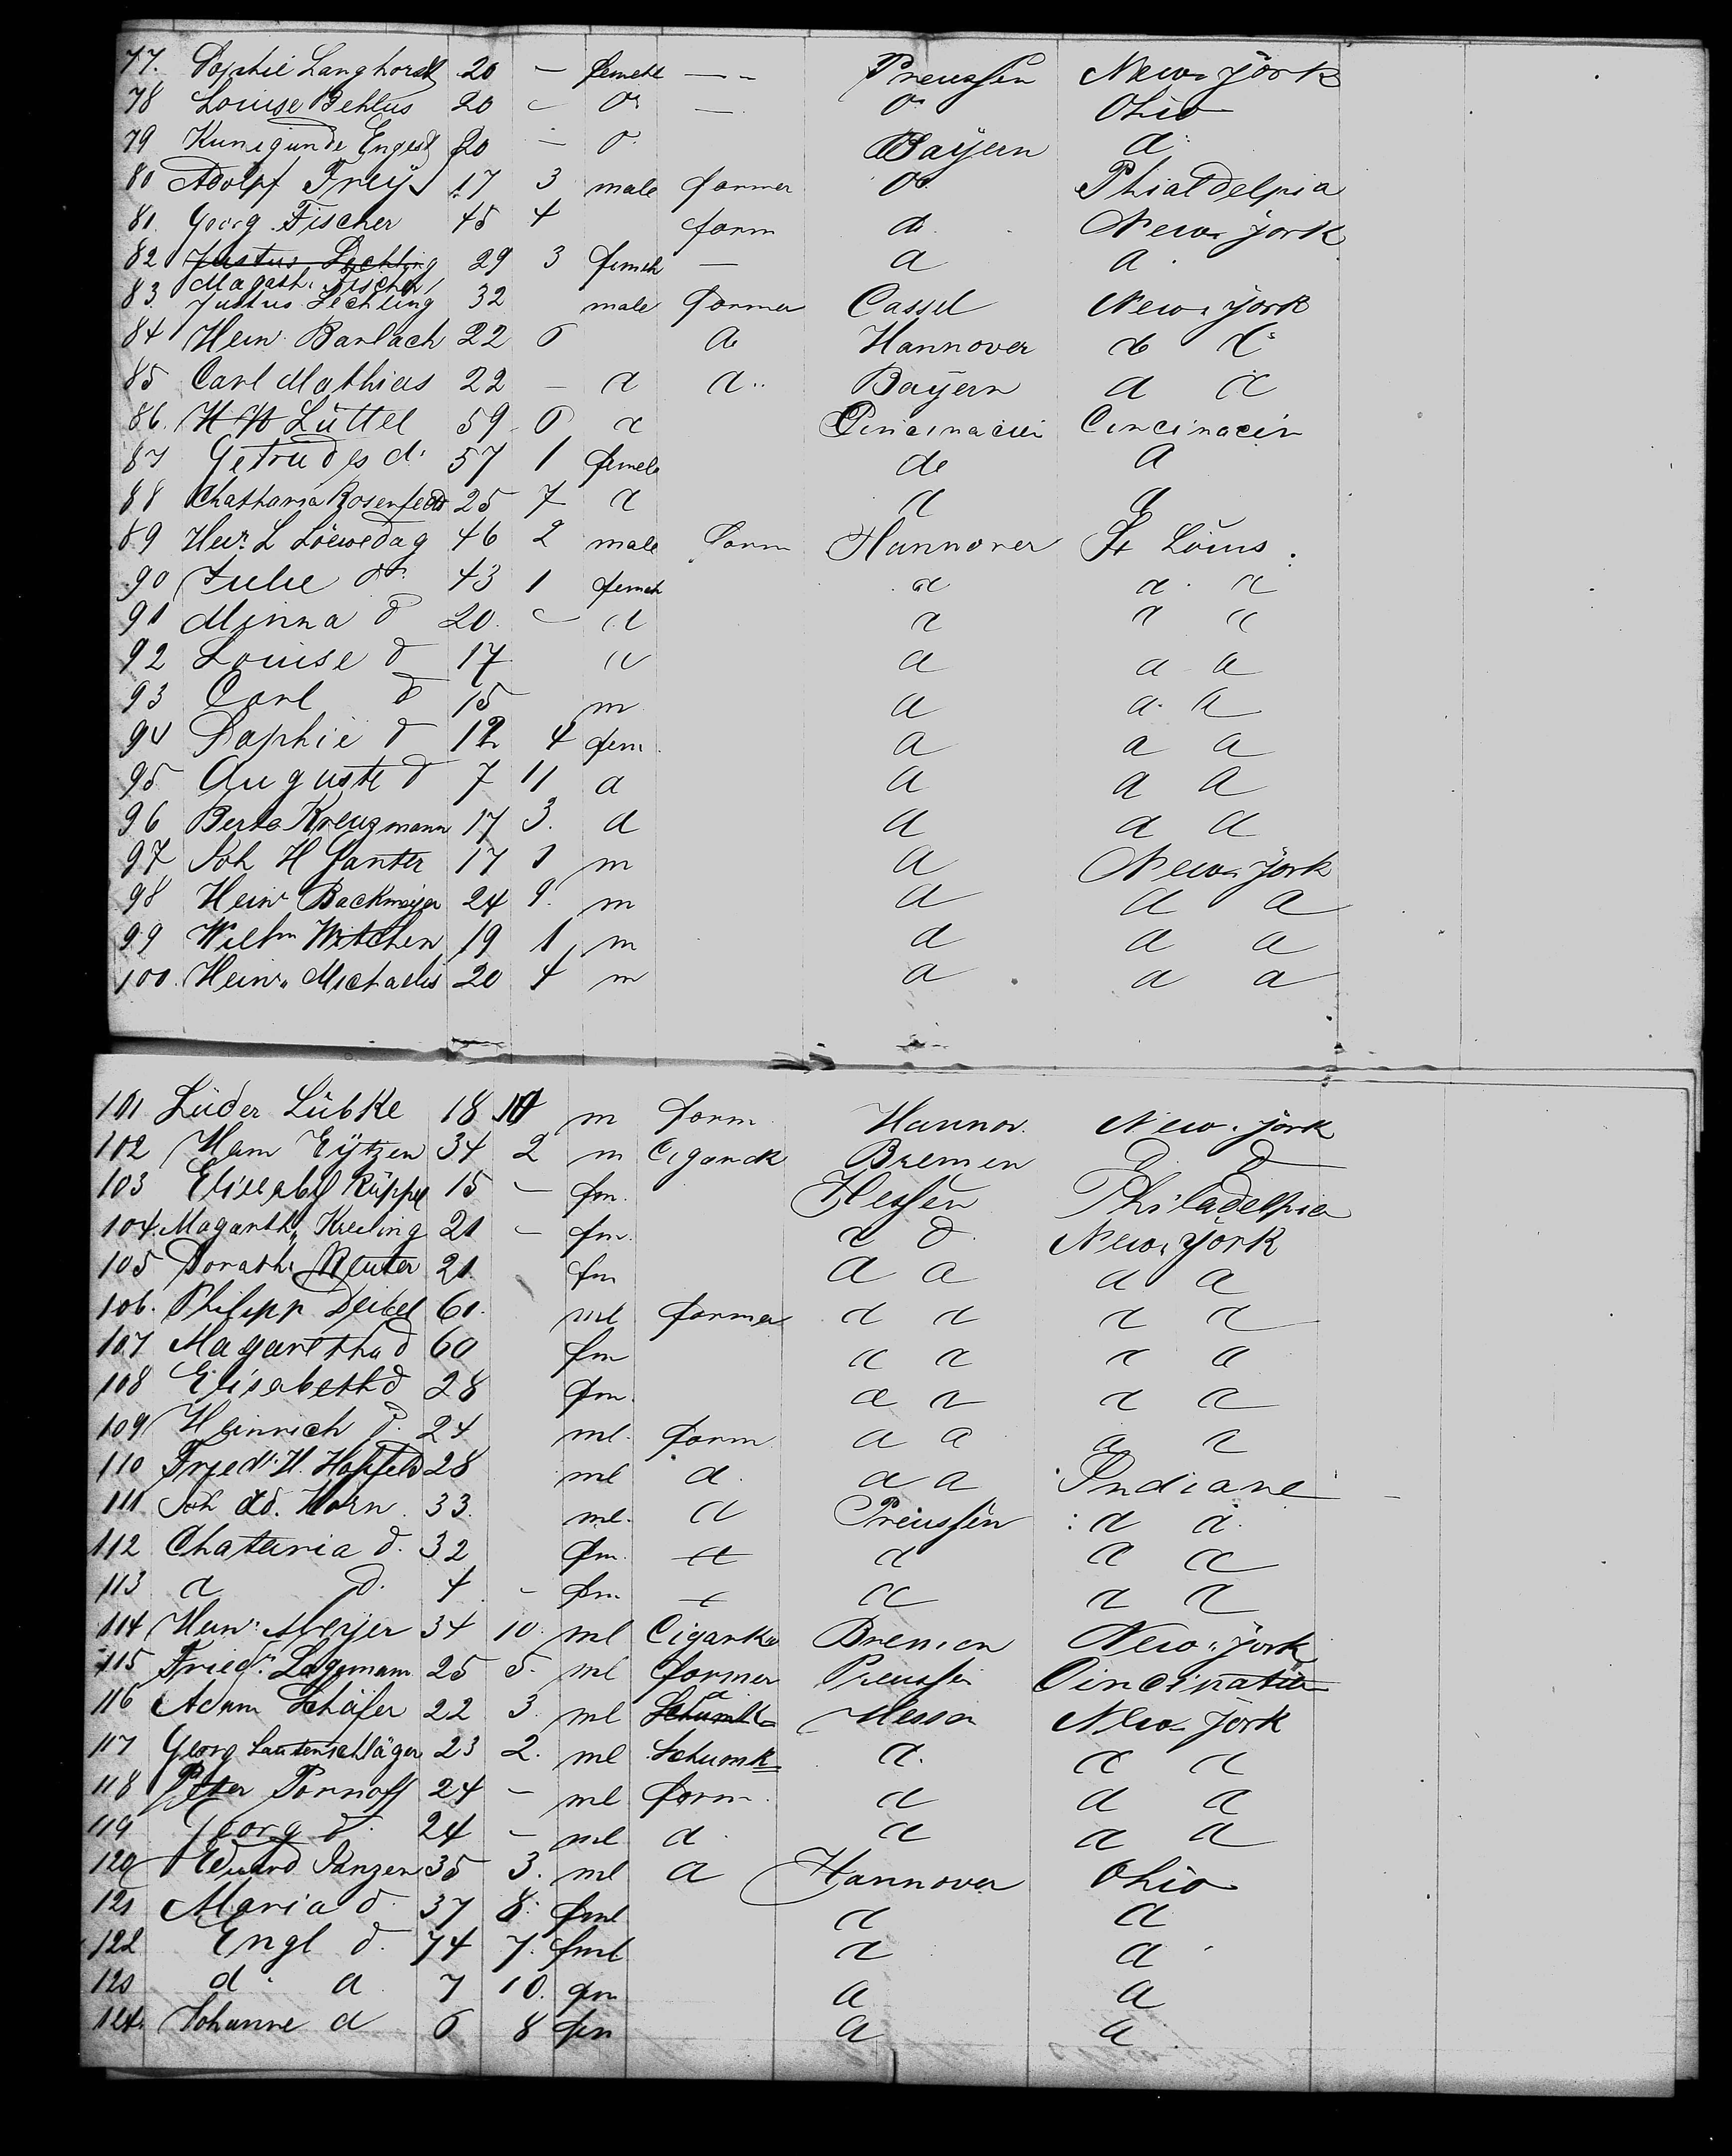 77. Sophie Langhorst 20 — femele — - Preussen New-york
78 Louise Behlus 20 - do — do Ohio
79 Kunigunde Engest 20 — do Bayern d:
80 Adolpf Frey 17 3 male farmer do Phialdelpia
81. Georg Fischer 45 4 farm do New york
82 Justus Lechling 29 3 femele — d d
Magath. Fischer
83. Justus Lechling 32 male farmer Cassel New-york
84 Hein Barlach 22 6 do Hannover do do
85 Carl Mathies 22 — d d.. Bayern d d
86. H W Lüttel 59 6 d Cincinacin Cincinacin
87 Getrudes d. 57 1 femele do d
88 Chatharia Rosenfeld 25 7 d d d
89 Heinr. L Löewedag 46 2 male farm Hannover St Louis.
90 Julie do 43 1 femele d d d
91 Minna d 20 - d d d d
92 Louise d 17 d d d d
93 Carl d 15 m d d. d
94 Sophie d 12 4 fem. d d d
95 Auguste d 7 11 d d d d
96 Berta Kreuzmann 17 3. d d d d
97 Joh H Ganter 17 1 m d New-york
98 Heinr Backmeyer 24 9. m d d d
99 Wilhm Witchen 19 1 m d d d
100. Heinr. Michaelis 20 4 m d d d
101 Lüder Lübke 18 10 m farm Hannov. New-york
102 Ham Eytzen 34 2 m Cigarck Bremen d d
103 Eliseabth Rüppel 15 - fm. Hessen Philadelpia
104. Magareth. Kreeling 21 - fm. d d. New-york
105 Dorath. Reuter 21. fm d d d d
106. Philipp Deibel 61. ml farmer d d d d
107 Magaretha d 60 fm d d d d
108 Elisabeth d 28 fm. d d d d
109 Heinrich d. 24 ml. farm d d d d
110 Friedr. H. Hopfeld 28 ml d. d d Indiane
111 Joh Ad. Horn 33. ml. d Preussen d d.
112 Chataria d. 32 fm. d d d d
113 d d. 4 - fm. d d d d
114 Heinr. Meyer 34 10. ml Cigarke Bremen New-york
115 Friedr. Lagemann 25 5. ml farmer Preussen Cincinatie
116 Adam Schäfer 22 3. ml Schumk d Hessen New-york
117 Georg Lautenschläger 23 2. ml Schumk d. d d
118 Peter Pornoff 24 - ml farm. d d d
119 Georg d. 24 - ml d. d d d
120 Eduard Janzen 35 3. ml d Hannover Ohio
121 Maria d. 37 8. fml d d
122 Engl d. 74 7. fml d d
123 d. d 7 10. fm d d
124. Johanne d 6 8 fm d d.